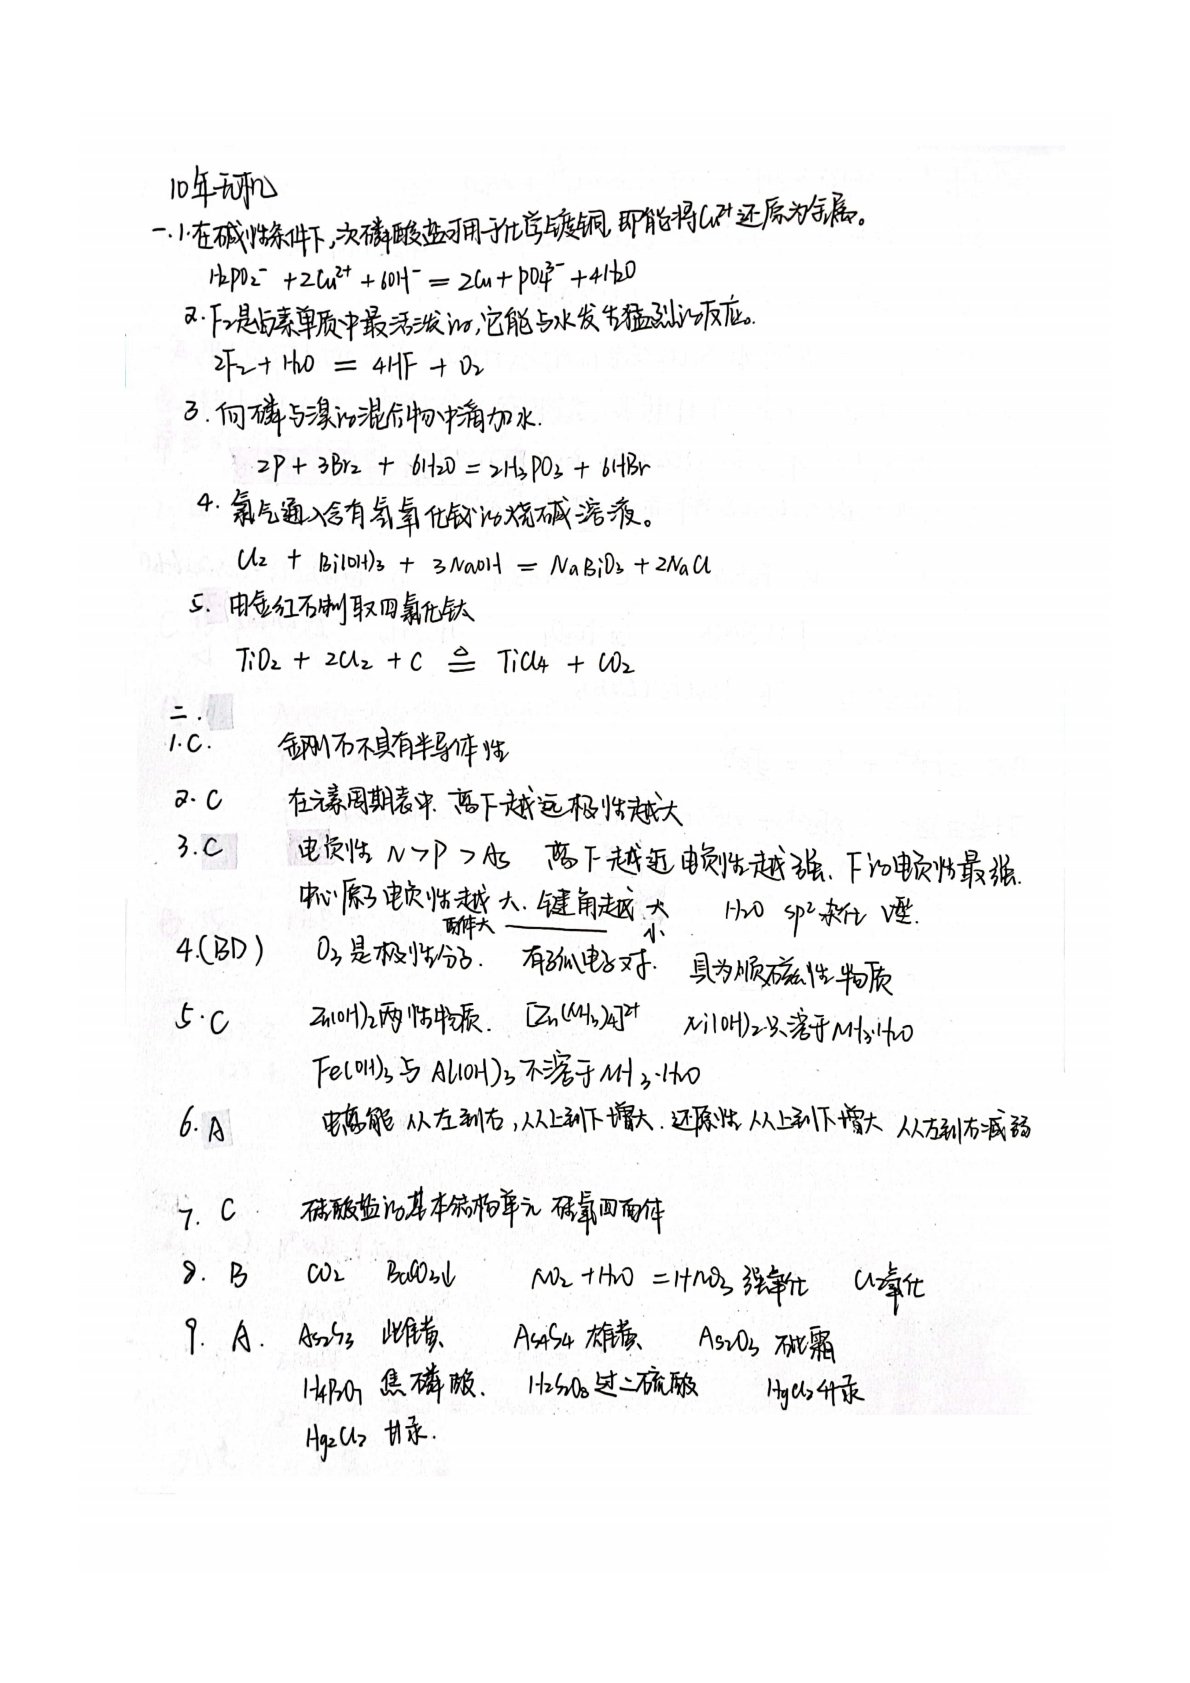 10年无机
一.1.在碱性条件下,次磷酸盐可用于化学镀铜,即能将Cu²⁺还原为金属。
H₂PO₂⁻ + 2Cu²⁺ + 6OH⁻ = 2Cu + PO₄³⁻ + 4H₂O
2.F₂是卤素单质中最活泼的,它能与水发生猛烈的反应。
2F₂ + H₂O = 4HF + O₂
3.向磷与溴的混合物中滴加水.
2P + 3Br₂ + 6H₂O = 2H₃PO₃ + 6HBr
4.氯气通入含有氢氧化铋的烧碱溶液。
Cl₂ + Bi(OH)₃ + 3NaOH = NaBiO₃ + 2NaCl
5.由金红石制取四氯化钛
TiO₂ + 2Cl₂ + C ≜ TiCl₄ + CO₂
二.
1.C. 金刚石不具有半导体性
2.C 在元素周期表中.离F越远极性越大
3.C 电负性 N>P>As 离F越近电负性越强.F的电负性最强.
中心原子电负性越大.键角越大 H₂O sp²杂化 V型.
小
4.(BD) O₃是极性分子. 有孤电子对. 具为顺磁性物质
5.C Zn(OH)₂两性物质. [Zn(NH₃)₄]²⁺ Ni(OH)₂只溶于NH₃·H₂O
Fe(OH)₃与Al(OH)₃不溶于NH₃·H₂O
6.A 电离能从左到右,从上到下增大.还原性从上到下增大 从左到右减弱
7. C 硅酸盐的基本结构单元 硅氧四面体
8. B CO₂ BaCO₃↓ NO₂+H₂O=HNO₃强氧化 Cl₂氧化
9. A. As₂S₃ 雌黄、 As₄S₄ 雄黄、 As₂O₃ 砒霜
H₄P₂O₇ 焦磷酸. H₂S₂O₈过二硫酸 HgCl₂升汞
Hg₂Cl₂ 甘汞.